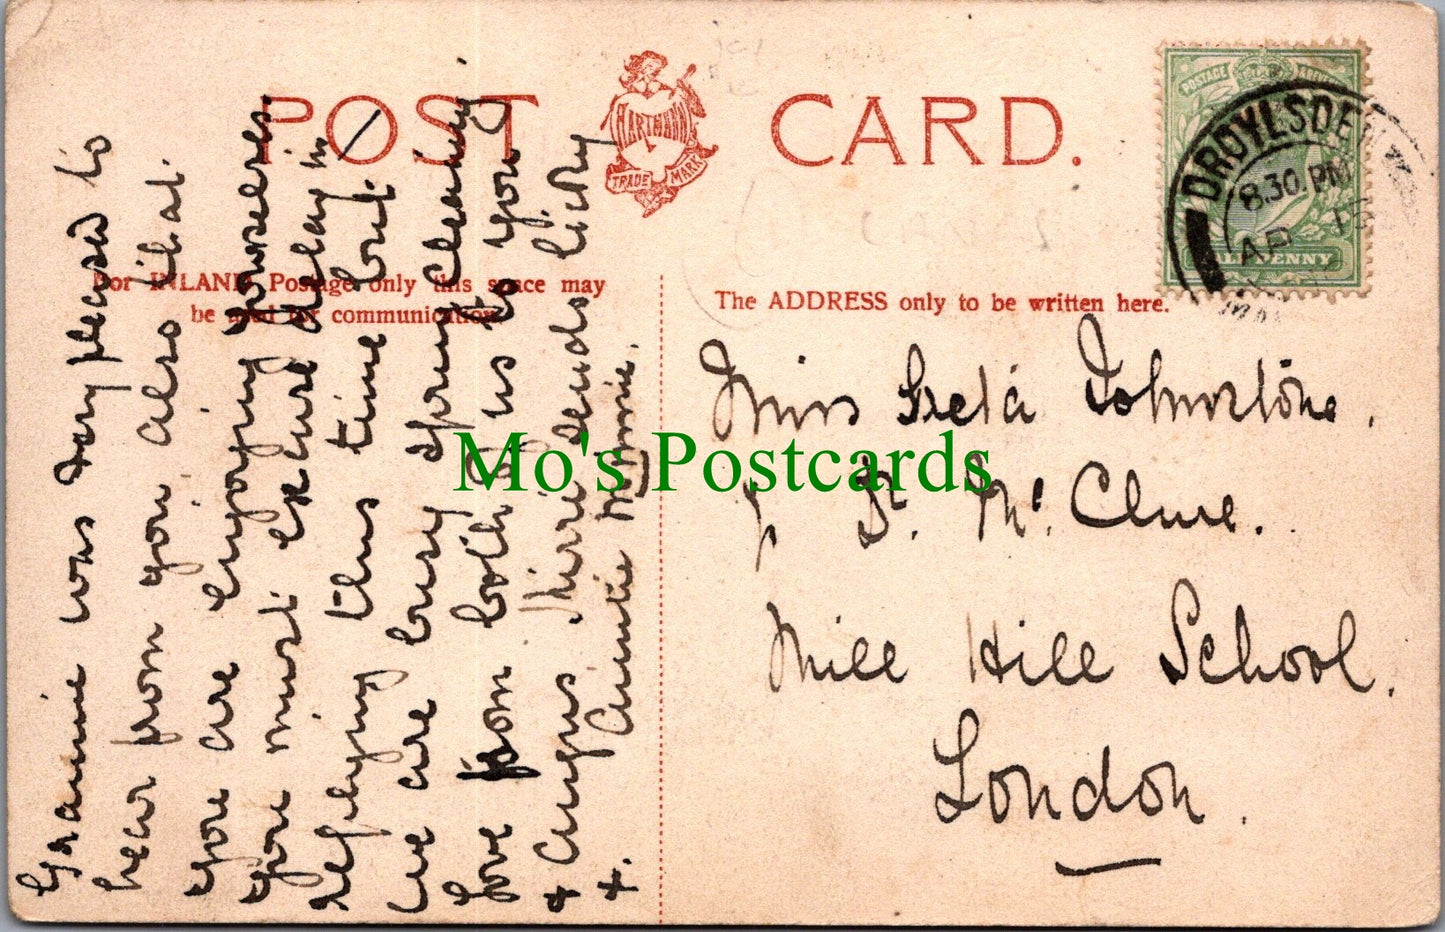 POST CARD.
HARTMANN
TRADE MARK
POSTAGE
HALFPENNY
DROYLSDEN
8.30 PM
AP 15
For INLAND Postage only this space may
be used for communication.
The ADDRESS only to be written here.
Grannie was very pleased to
hear from you also that
you are enjoying yourselves.
You must excuse delay in
replying this time but
we are busy Spring Cleaning.
Love from both of us to you
& Angus. Mrs sends Licky
&. Auntie Minnie.
Miss Greta Johnstone.
Dr. Mc. Clure.
Mill Hill School.
London.
Mo's Postcards